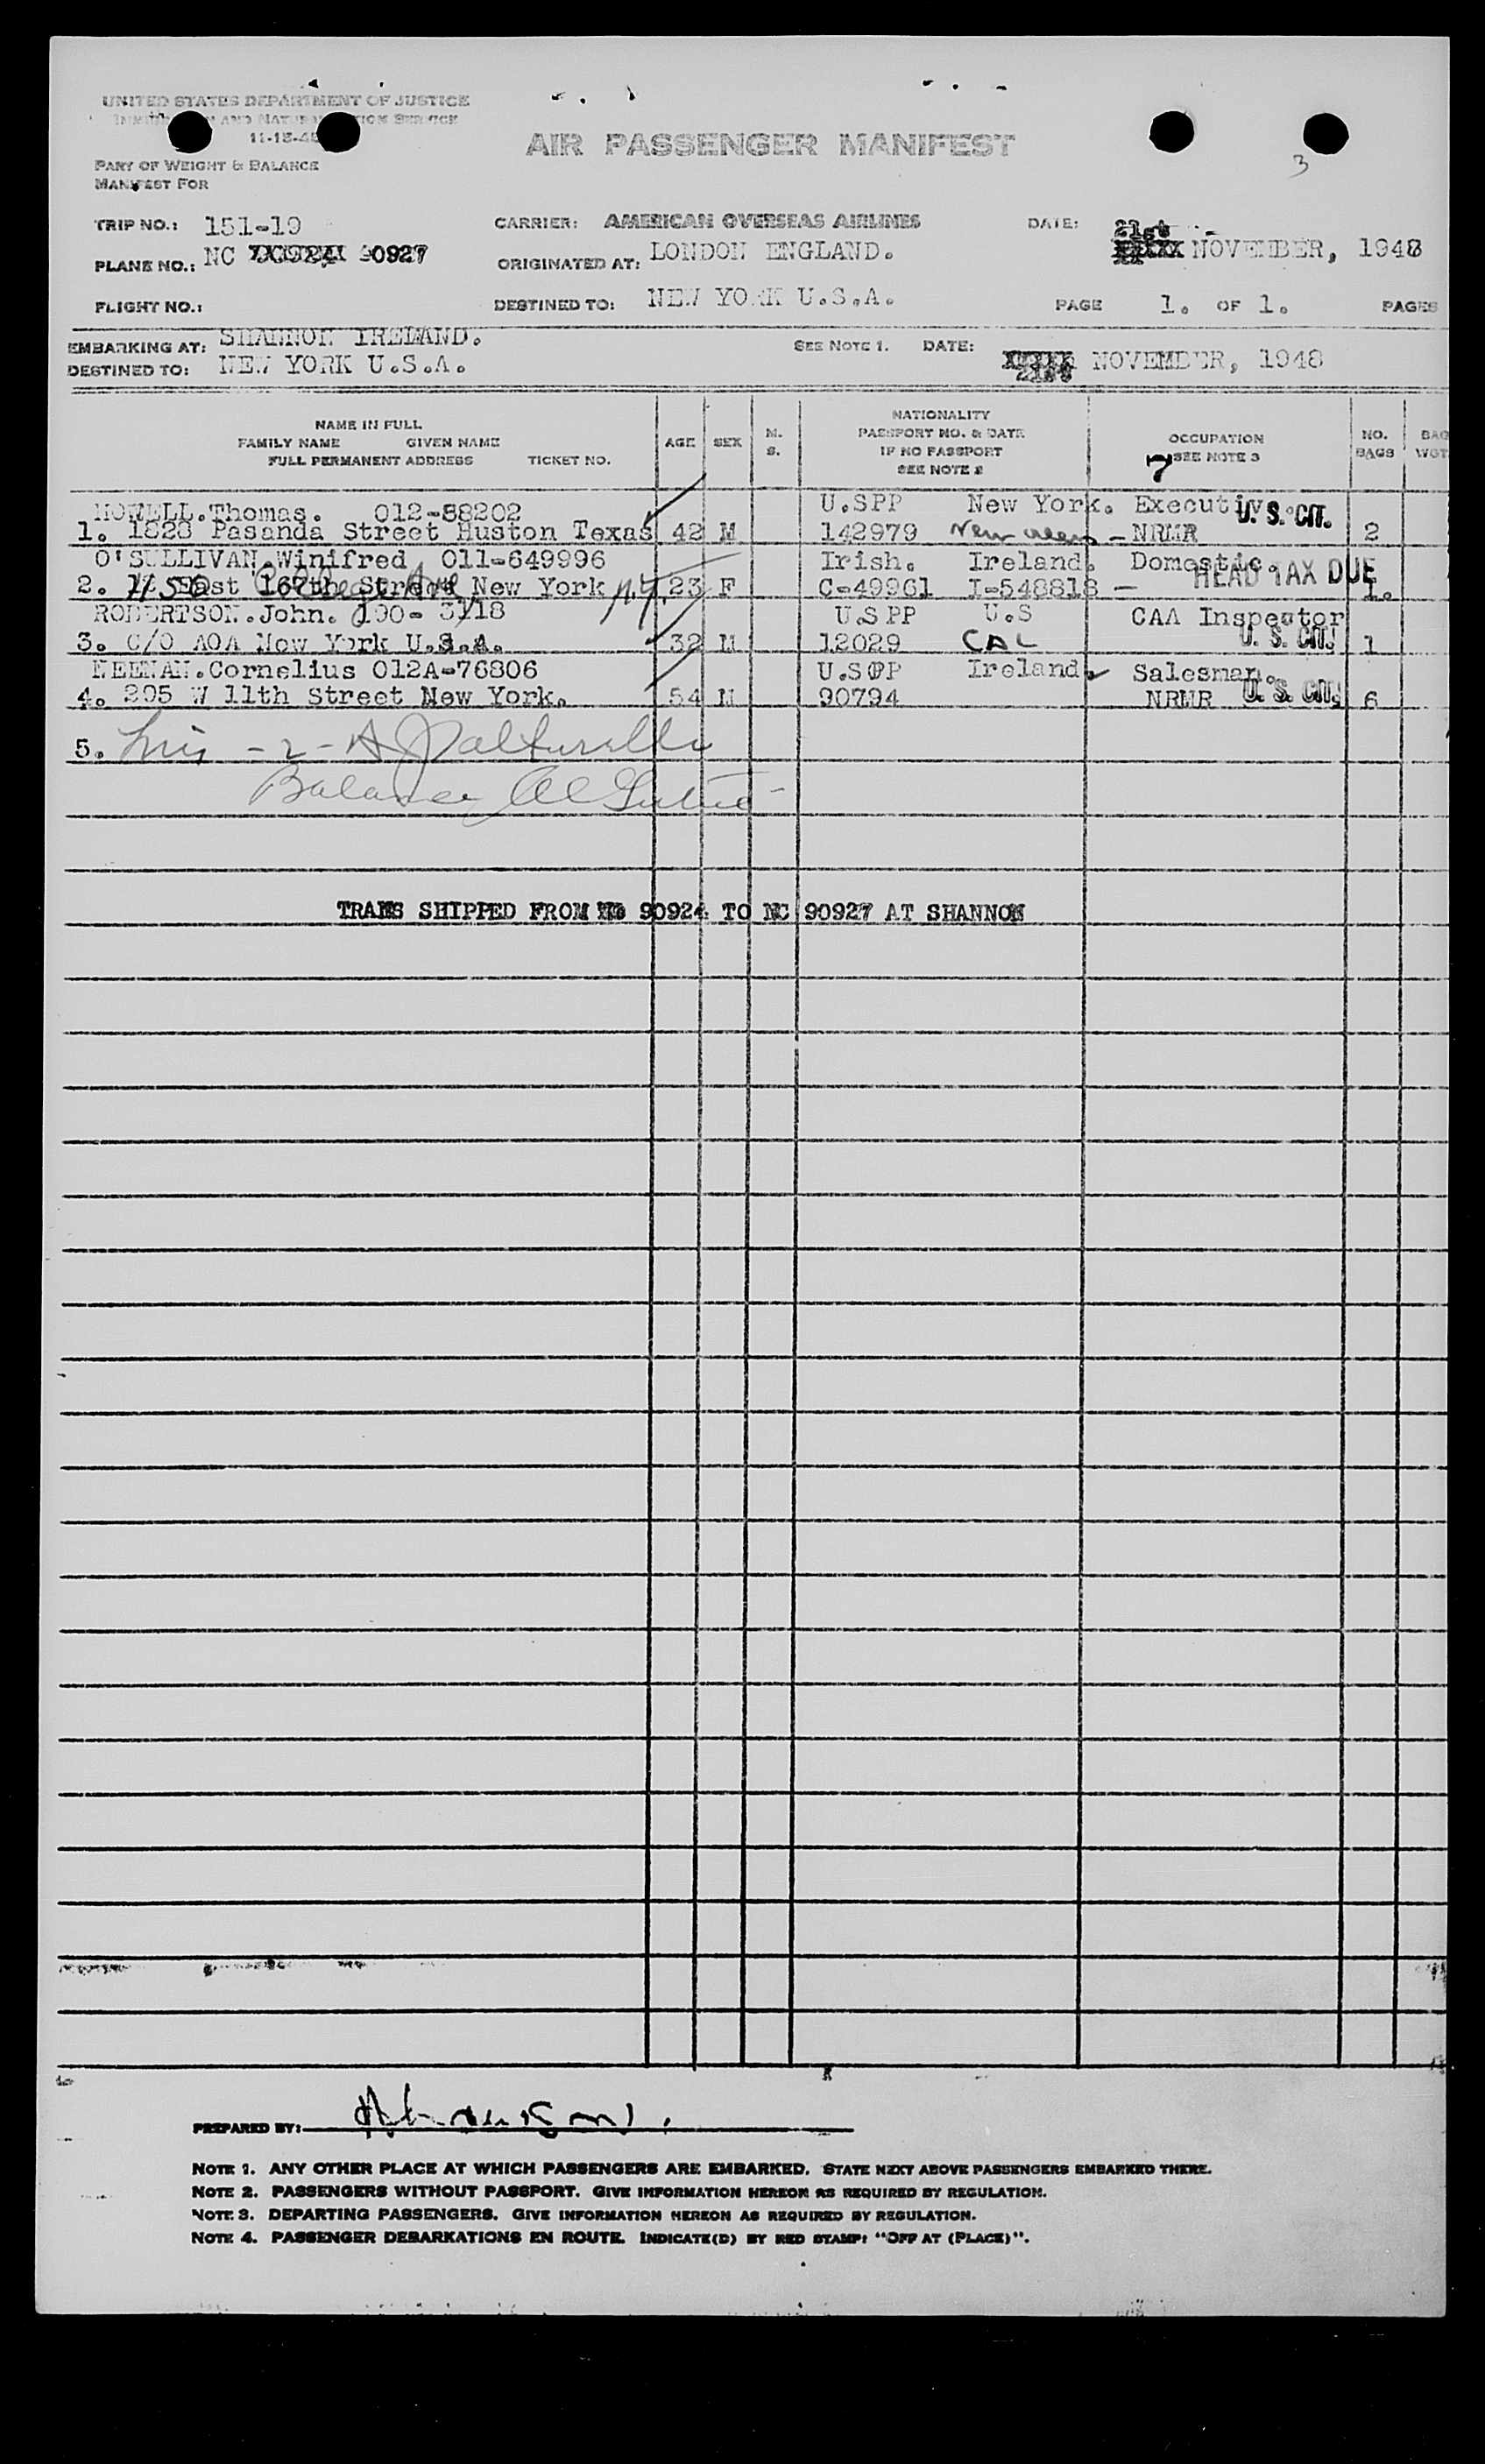 UNITED STATES DEPARTMENT OF JUSTICE
AIR PASSENGER MANIFEST
3
PART OF WEIGHT & BALANCE
MANIFEST FOR
TRIP NO.: 151-19 CARRIER: AMERICAN OVERSEAS AIRLINES DATE: 21st
PLANE NO.: NC 90927 ORIGINATED AT: LONDON ENGLAND. NOVEMBER, 1948
FLIGHT NO.: DESTINED TO: NEW YORK U.S.A. PAGE 1. OF 1. PAGES
EMBARKING AT: SHANNON IRELAND. SEE NOTE 1. DATE: 21st NOVEMBER, 1948
DESTINED TO: NEW YORK U.S.A.
NAME IN FULL
FAMILY NAME GIVEN NAME
FULL PERMANENT ADDRESS TICKET NO.
AGE SEX M. S.
NATIONALITY
PASSPORT NO. & DATE
IF NO PASSPORT
SEE NOTE 2
7
OCCUPATION
SEE NOTE 3
NO. BAGS
BAG WGT.
HOWELL.Thomas. 012-88202 U.SPP New York. Executive U.S. CIT.
1. 1828 Pasanda Street Huston Texas 42 M 142979 New - NRMR 2
O'SULLIVAN.Winifred 011-649996 Irish. Ireland. Domestic. HEAD TAX DUE
2. East 167th Street New York N.Y. 23 F C-49961 I-548818 - 1.
ROBERTSON.John. 190- 3718 U.S PP U.S CAA Inspector
3. C/O AOA New York U.S.A. 32 M 12029 CAL U.S. CIT. 1
NEENAN.Cornelius 012A-76806 U.S PP Ireland. Salesman.
4. 295 W 11th Street New York. 54 M 90794 NRMR U.S. CIT. 6
5.
Balance
TRANS SHIPPED FROM NC 90924 TO NC 90927 AT SHANNON
PREPARED BY:
NOTE 1. ANY OTHER PLACE AT WHICH PASSENGERS ARE EMBARKED. STATE NEXT ABOVE PASSENGERS EMBARKED THERE.
NOTE 2. PASSENGERS WITHOUT PASSPORT. GIVE INFORMATION HEREON AS REQUIRED BY REGULATION.
NOTE 3. DEPARTING PASSENGERS. GIVE INFORMATION HEREON AS REQUIRED BY REGULATION.
NOTE 4. PASSENGER DEBARKATIONS EN ROUTE. INDICATE(D) BY RED STAMP: "OFF AT (PLACE)".